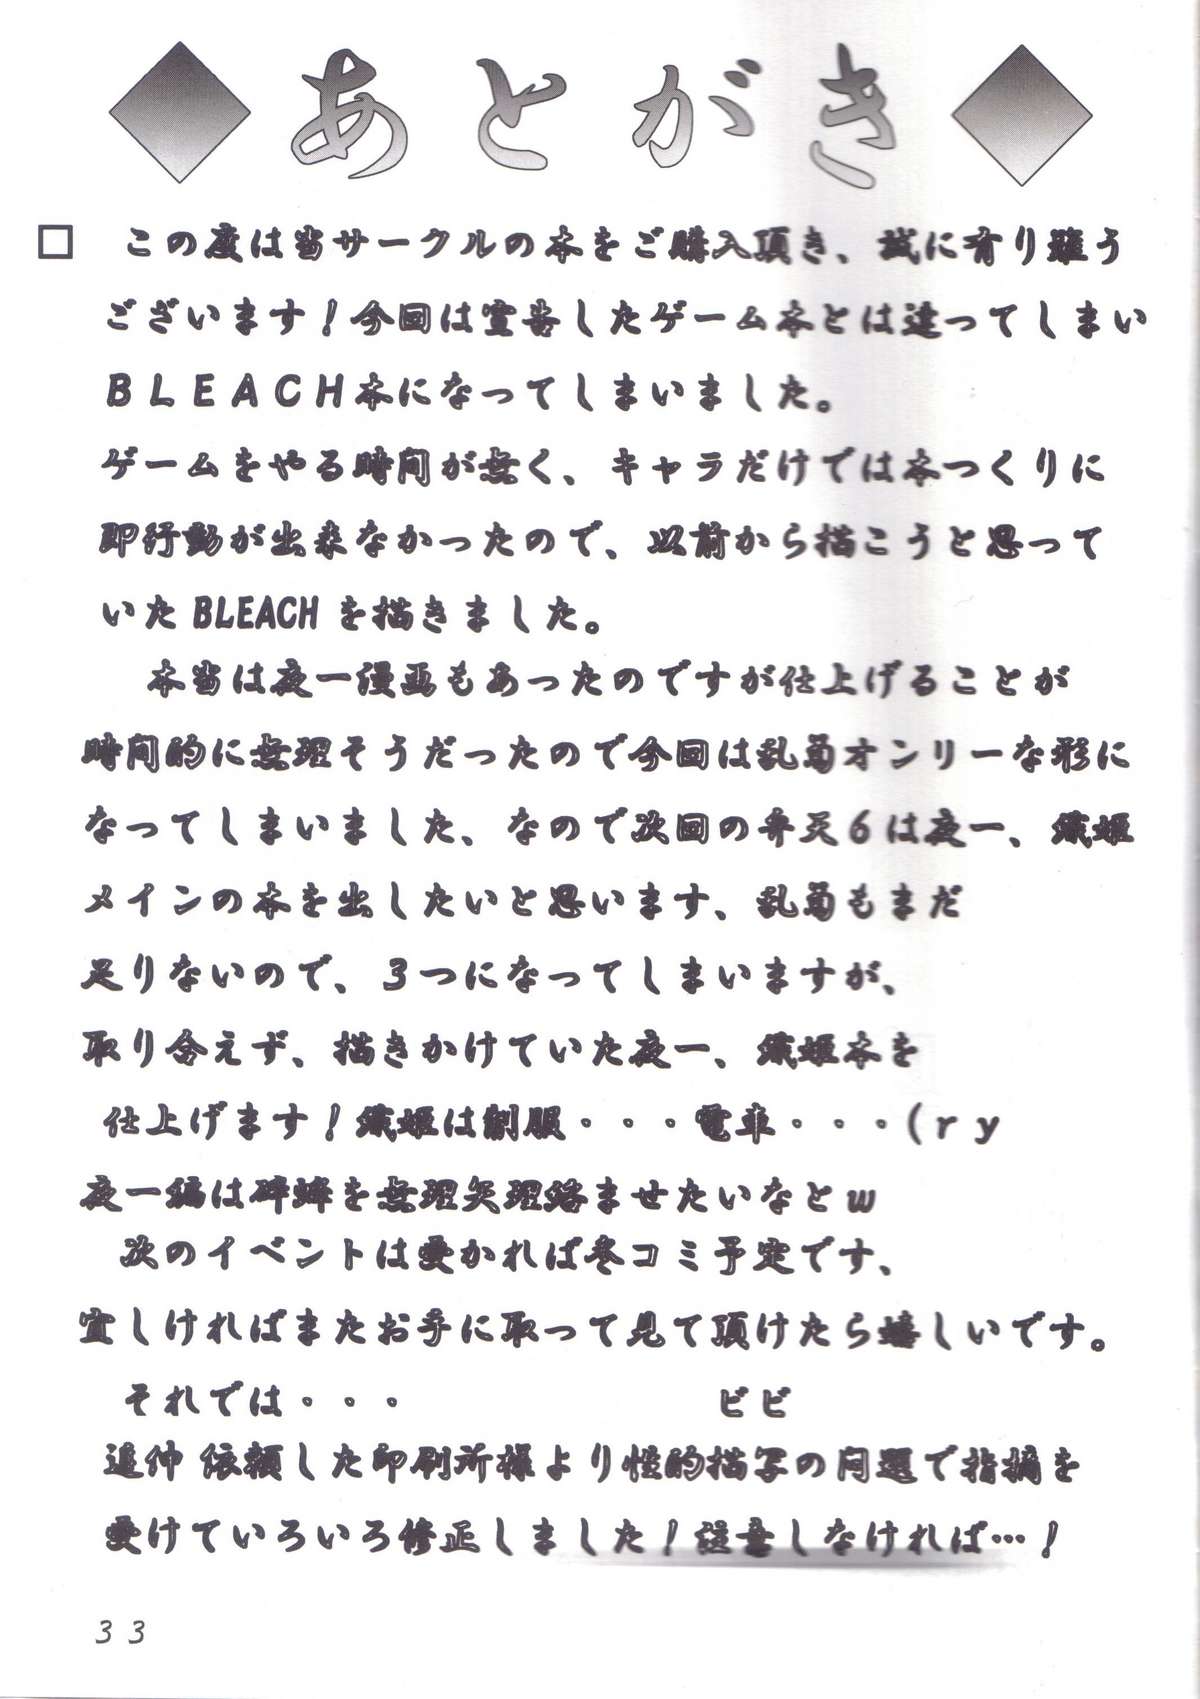 あとがき
□ この度は当サークルの本をご購入頂き、誠に有り難う
ございます!今回は宣告したゲーム本とは違ってしまい
BLEACH本になってしまいました。
ゲームをやる時間が無く、キャラだけでは本つくりに
即行動が出来なかったので、以前から描こうと思って
いたBLEACHを描きました。
本当は夜一漫画もあったのですが仕上げることが
時間的に無理そうだったので今回は乱菊オンリーな形に
なってしまいました、なので次回の弁天6は夜一、織姫
メインの本を出したいと思います、乱菊もまだ
足りないので、3つになってしまいますが、
取り合えず、描きかけていた夜一、織姫本を
仕上げます!織姫は制服・・・電車・・・(ry
夜一編は砕蜂を無理矢理絡ませたいなとw
次のイベントは受かれば冬コミ予定です、
宜しければまたお手に取って見て頂けたら嬉しいです。
それでは・・・ ビビ
追伸 依頼した印刷所様より性的描写の問題で指摘を
受けていろいろ修正しました!注意しなければ…!
33